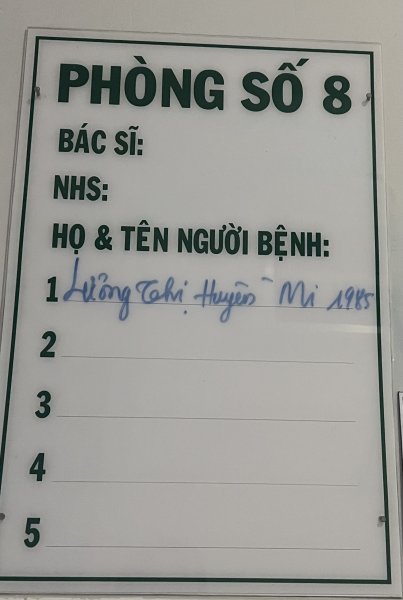 PHÒNG SỐ 8
BÁC SĨ:
NHS:
HỌ & TÊN NGƯỜI BỆNH:
1 Lương Thị Huyền Mi 1985
2
3
4
5